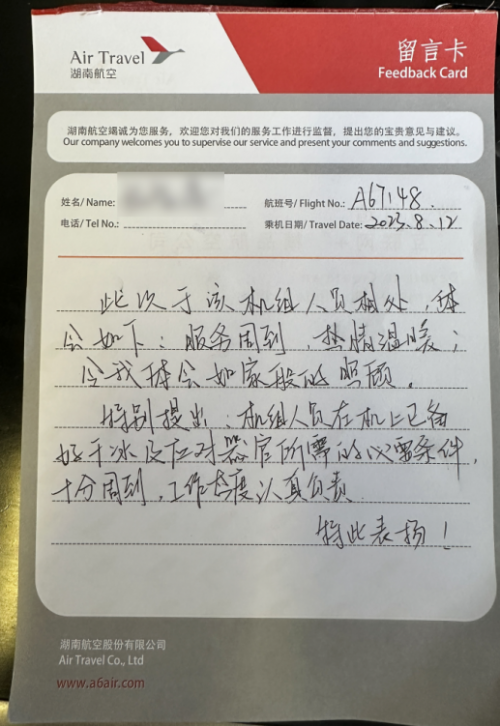 Air Travel
湖南航空
留言卡
Feedback Card
湖南航空竭诚为您服务，欢迎您对我们的服务工作进行监督，提出您的宝贵意见与建议。
Our company welcomes you to supervise our service and present your comments and suggestions.
姓名/ Name:
航班号/ Flight No.: A67148.
电话/ Tel No.:
乘机日期/ Travel Date: 2023.8.12
此次于该机组人员相处，体
会如下：服务周到，热情温暖；
令我体会如家般的照顾。
特别提出：机组人员在机上已备
好干冰及应对器官所需的必需条件，
十分周到，工作态度认真负责
特此表扬！
湖南航空股份有限公司
Air Travel Co., Ltd
www.a6air.com